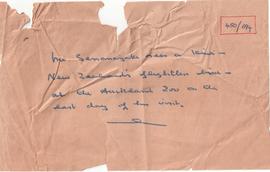 450/1114
Mr Senanayake sees a Kiwi -
New Zealand's flightless bird -
at the Auckland Zoo on the
last day of his visit.